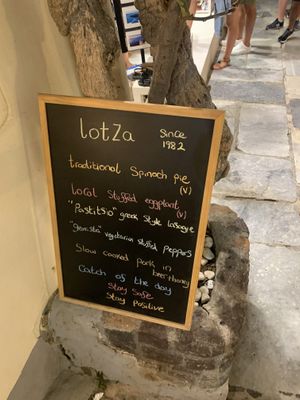 lotza
Since
1982
traditional Spinach pie
(V)
Local Stuffed eggplant
(V)
"Pastitsio" greek style lasagne
"gemista" vegetarian stuffed peppers
Slow cooked pork in
beer+honey
Catch of the day
Stay Safe
Stay Positive